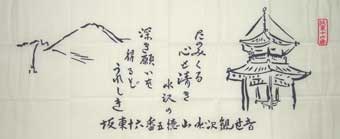 たのみくる
心も清き
水沢の
深き願いを
得るぞ
うれしき
坂東十六番五徳山水沢観世音